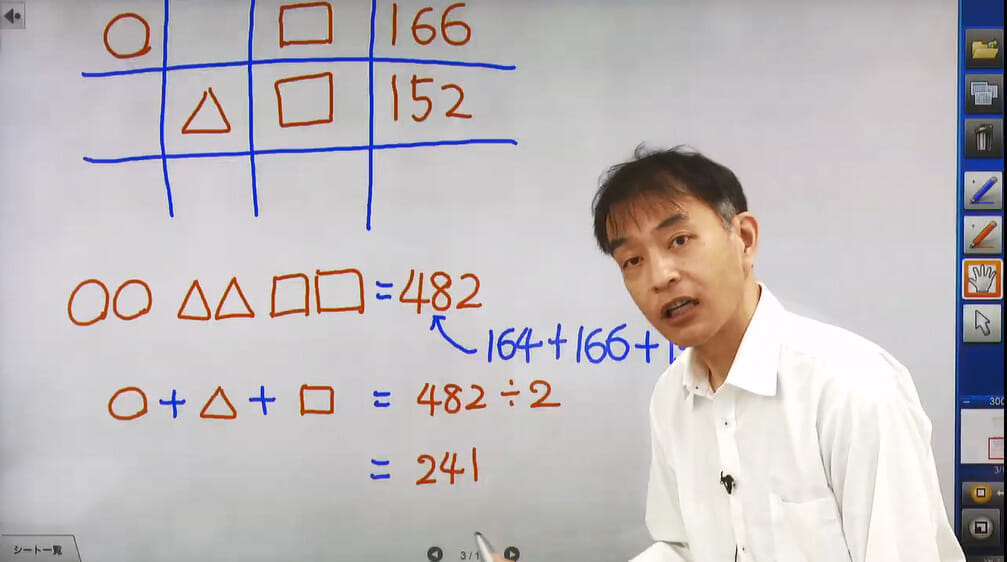 ○ □ 166
△ □ 152
○○ △△ □□ = 482
164+166+1
○ + △ + □ = 482÷2
= 241
シート一覧
3/1
300
3/1